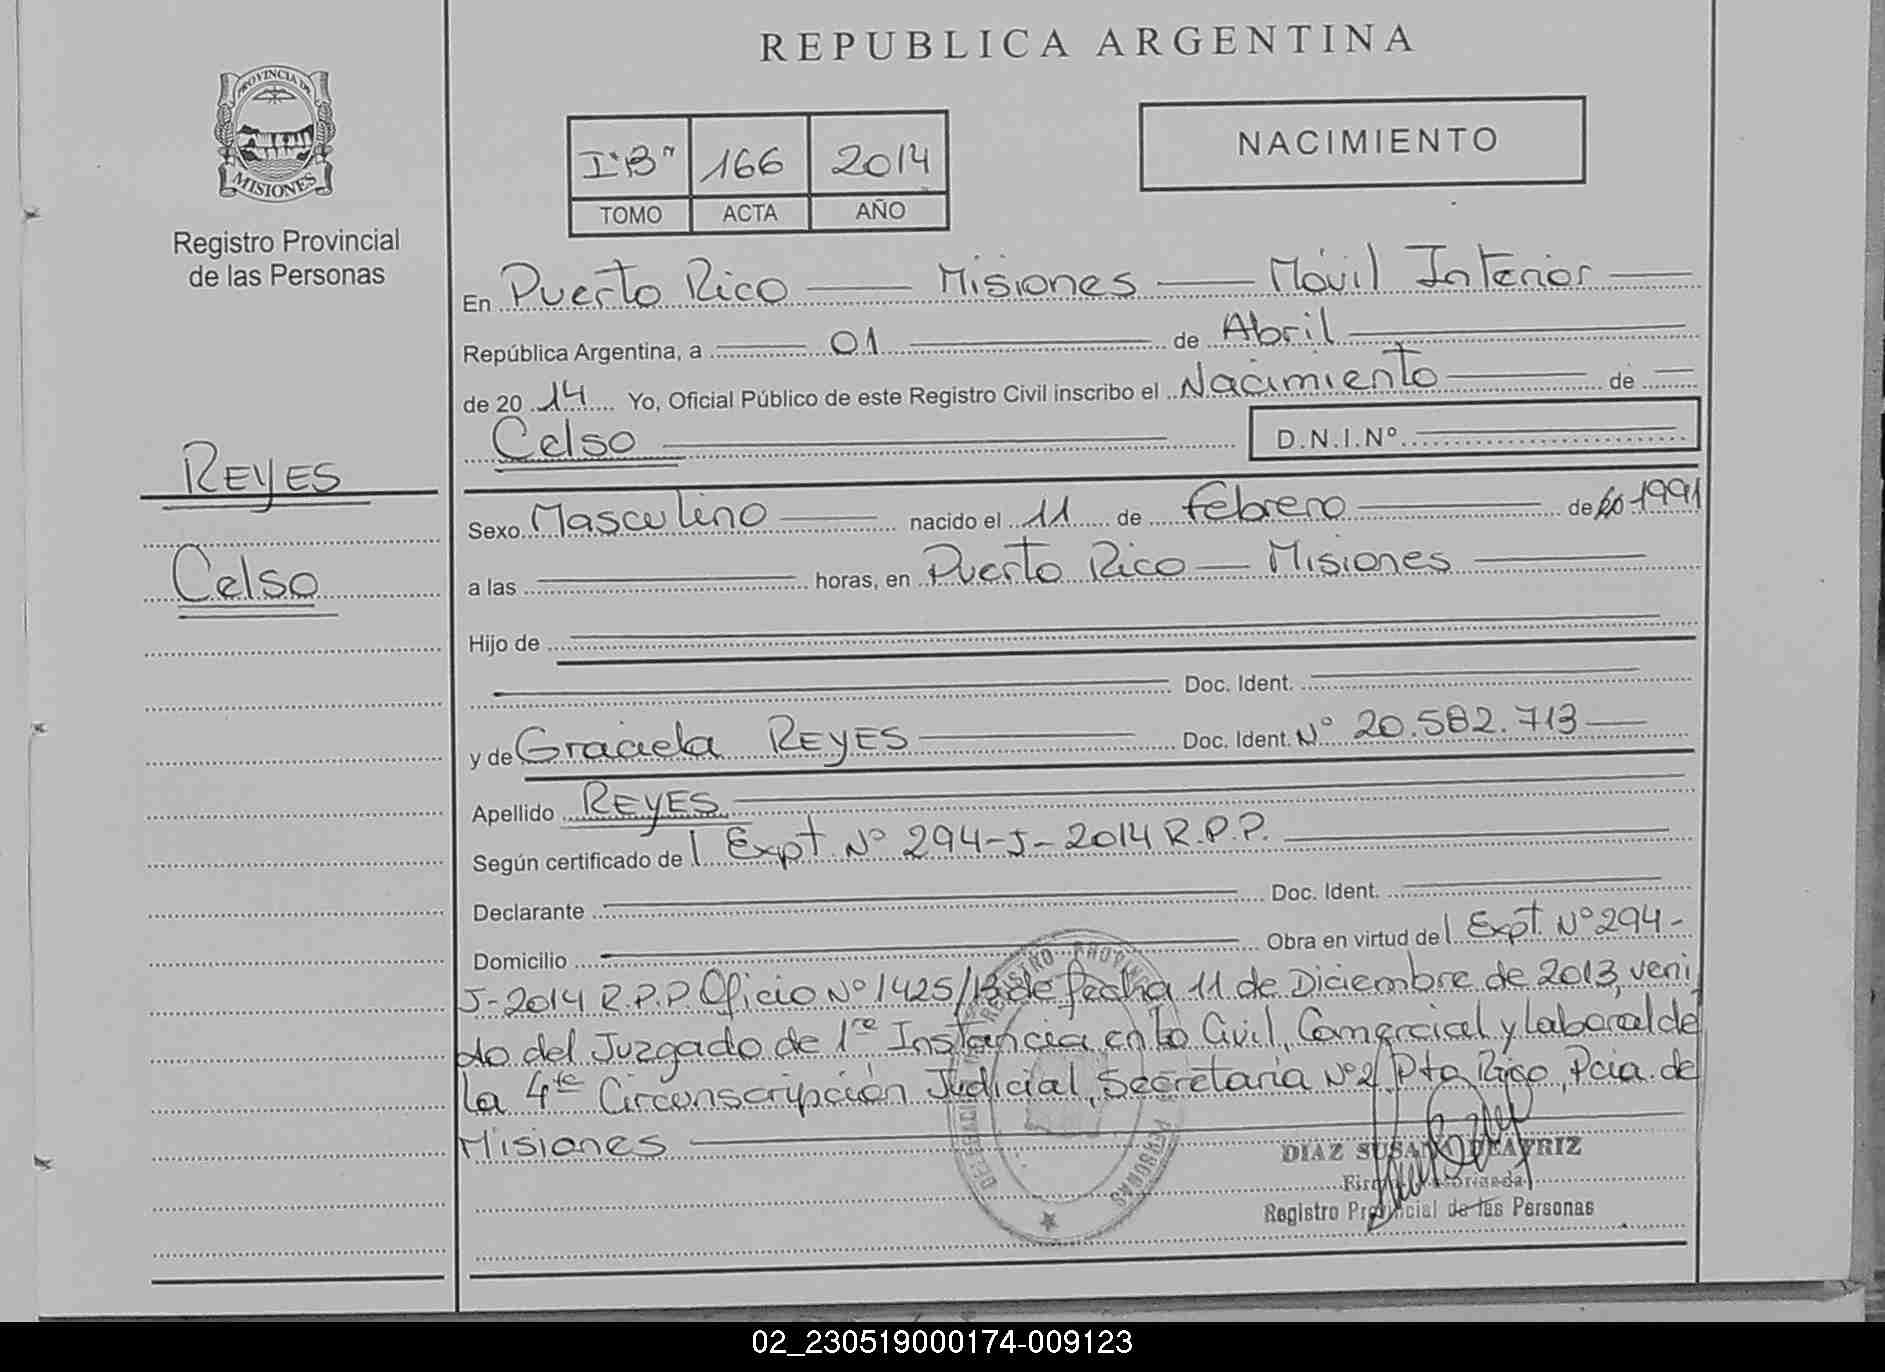 REPUBLICA ARGENTINA
PROVINCIA DE
MISIONES
Registro Provincial
de las Personas
I "B" 166 2014
TOMO ACTA AÑO
NACIMIENTO
REYES
Celso
En Puerto Rico — Misiones — Móvil Interior
República Argentina, a 01 de Abril
de 20 14 Yo, Oficial Público de este Registro Civil inscribo el Nacimiento de
Celso D.N.I.Nº
Sexo Masculino nacido el 11 de Febrero de 1991
a las horas, en Puerto Rico — Misiones
Hijo de
Doc. Ident.
y de Graciela REYES Doc. Ident. Nº 20.582.713
Apellido REYES
Según certificado de l Expt. Nº 294-J-2014 R.P.P.
Declarante Doc. Ident.
Domicilio Obra en virtud del Expt. Nº 294-
J-2014 R.P.P. Oficio Nº 1425/13 de fecha 11 de Diciembre de 2013, veni
do del Juzgado de 1ra Instancia en lo Civil, Comercial y Laboral de
la 4ta Circunscripción Judicial, Secretaria Nº 2, Pto Rico, Pcia. de
Misiones
DIAZ SUSANA BEATRIZ
Firma Autorizada
Registro Provincial de las Personas
REGISTRO PROVINCIAL DE LAS PERSONAS
02_230519000174-009123